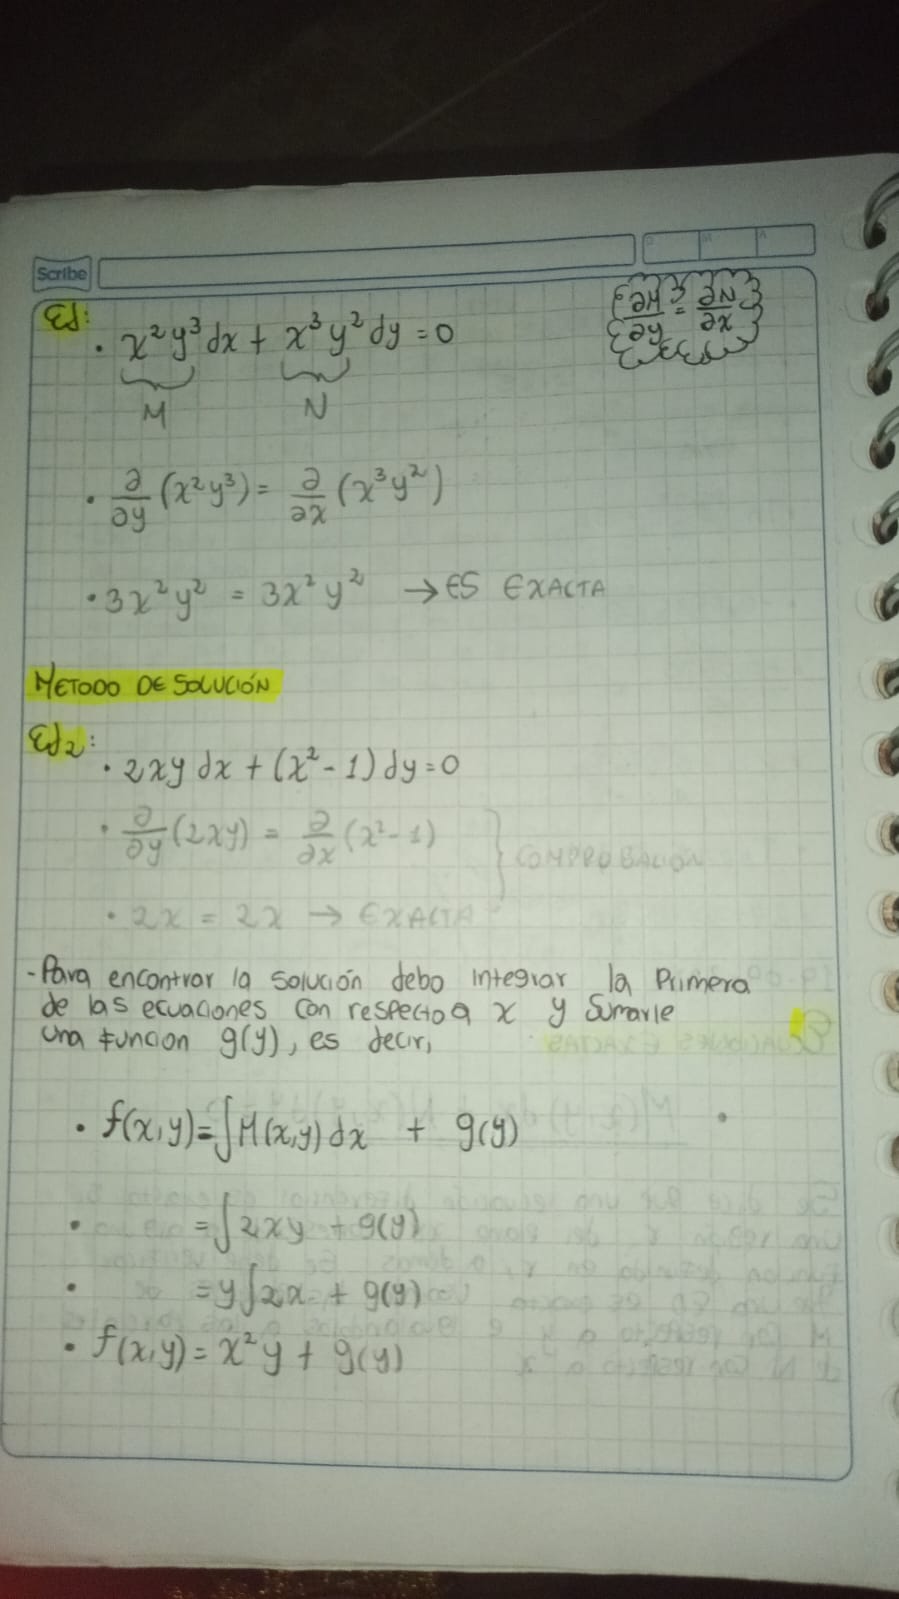 Scribe
Ed:
• x²y³dx + x³y²dy = 0
M N
∂M/∂y = ∂N/∂x
• ∂/∂y (x²y³) = ∂/∂x (x³y²)
• 3x²y² = 3x²y² → ES EXACTA
METODO DE SOLUCIÓN
Ed2:
• 2xy dx + (x² - 1) dy = 0
• ∂/∂y (2xy) = ∂/∂x (x² - 1)
COMPROBACIÓN
• 2x = 2x → EXACTA
- Para encontrar la solución debo integrar la Primera
de las ecuaciones con respecto a x y Sumarle
una función g(y), es decir,
• f(x,y) = ∫M(x,y) dx + g(y)
• = ∫2xy + g(y)
• = y∫2x + g(y)
• f(x,y) = x²y + g(y)